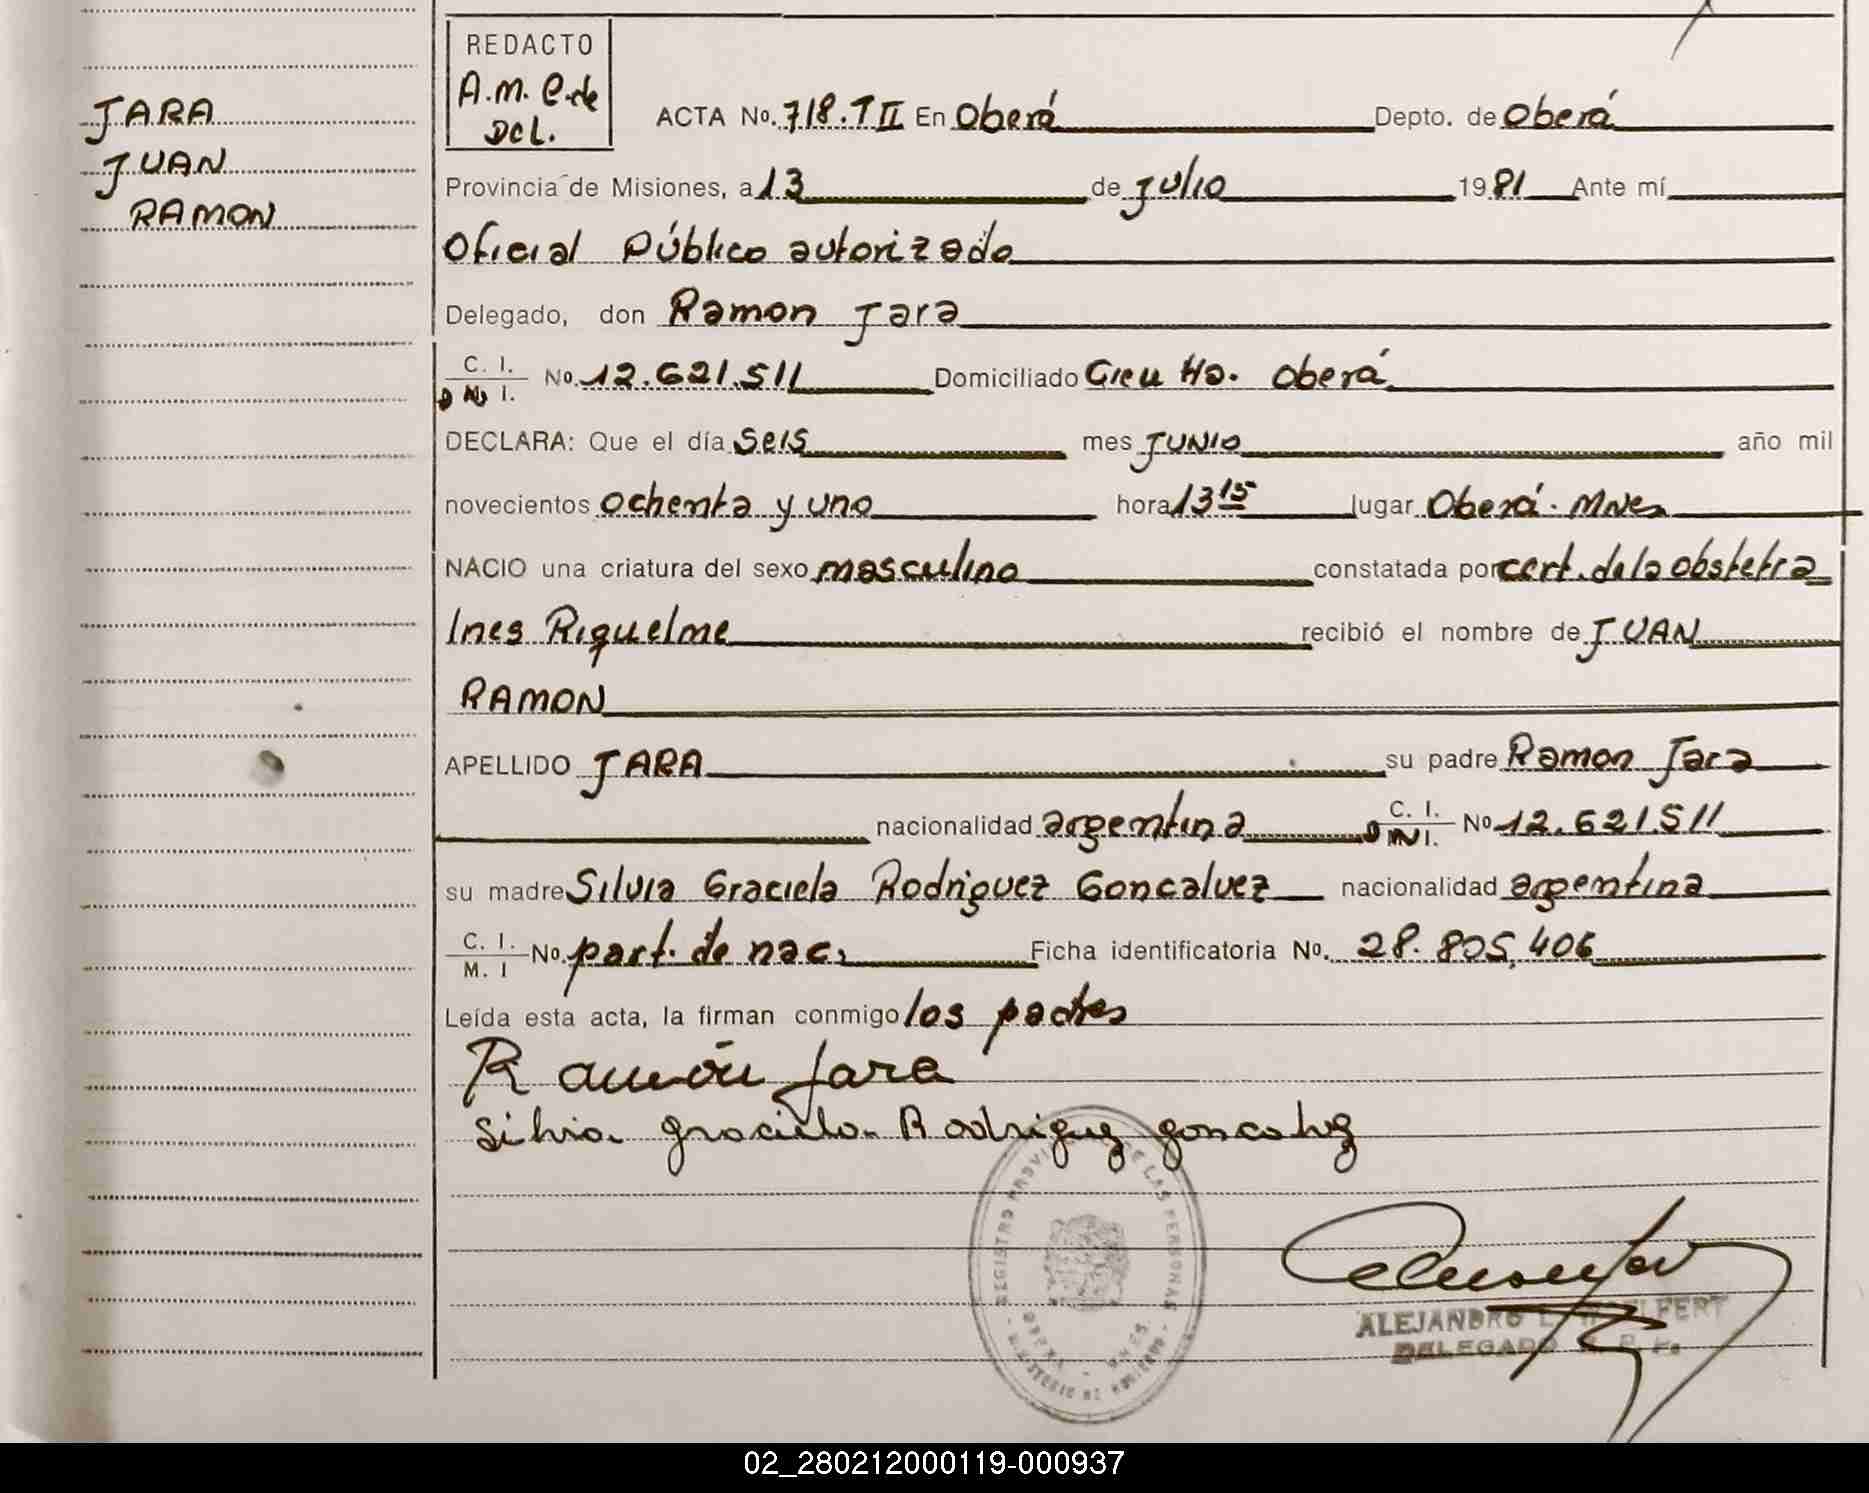 JARA
JUAN
RAMON
REDACTO
A.M. C. de
DCL.
ACTA No. 718. T II En Oberá Depto. de Oberá
Provincia de Misiones, a 13 de Julio 1981 Ante mí
Oficial Público autorizado
Delegado, don Ramon Jara
C. I. No. 12.621.511 Domiciliado Oberá
D N I.
DECLARA: Que el día seis mes JUNIO año mil
novecientos ochenta y uno hora 13 15 lugar Oberá. Mnes
NACIO una criatura del sexo masculino constatada por cert. de la obstetra
Ines Riquelme recibió el nombre de JUAN
RAMON
APELLIDO JARA su padre Ramon Jara
nacionalidad argentina C. I. No 12.621.511
D N I.
su madre Silvia Graciela Rodriguez Goncalvez nacionalidad argentina
C. I. No. part. de nac. Ficha identificatoria No. 28.805.406
M. I
Leída esta acta, la firman conmigo los padres
Ramón Jara
Silvia Graciela Rodriguez Goncalvez
REGISTRO PROVI DE LAS PERSONAS
OBERA - MNES.
MINISTERIO DE GOBIERNO
ALEJANDRO L. FERT
DELEGADO R. P. P.
02_280212000119-000937